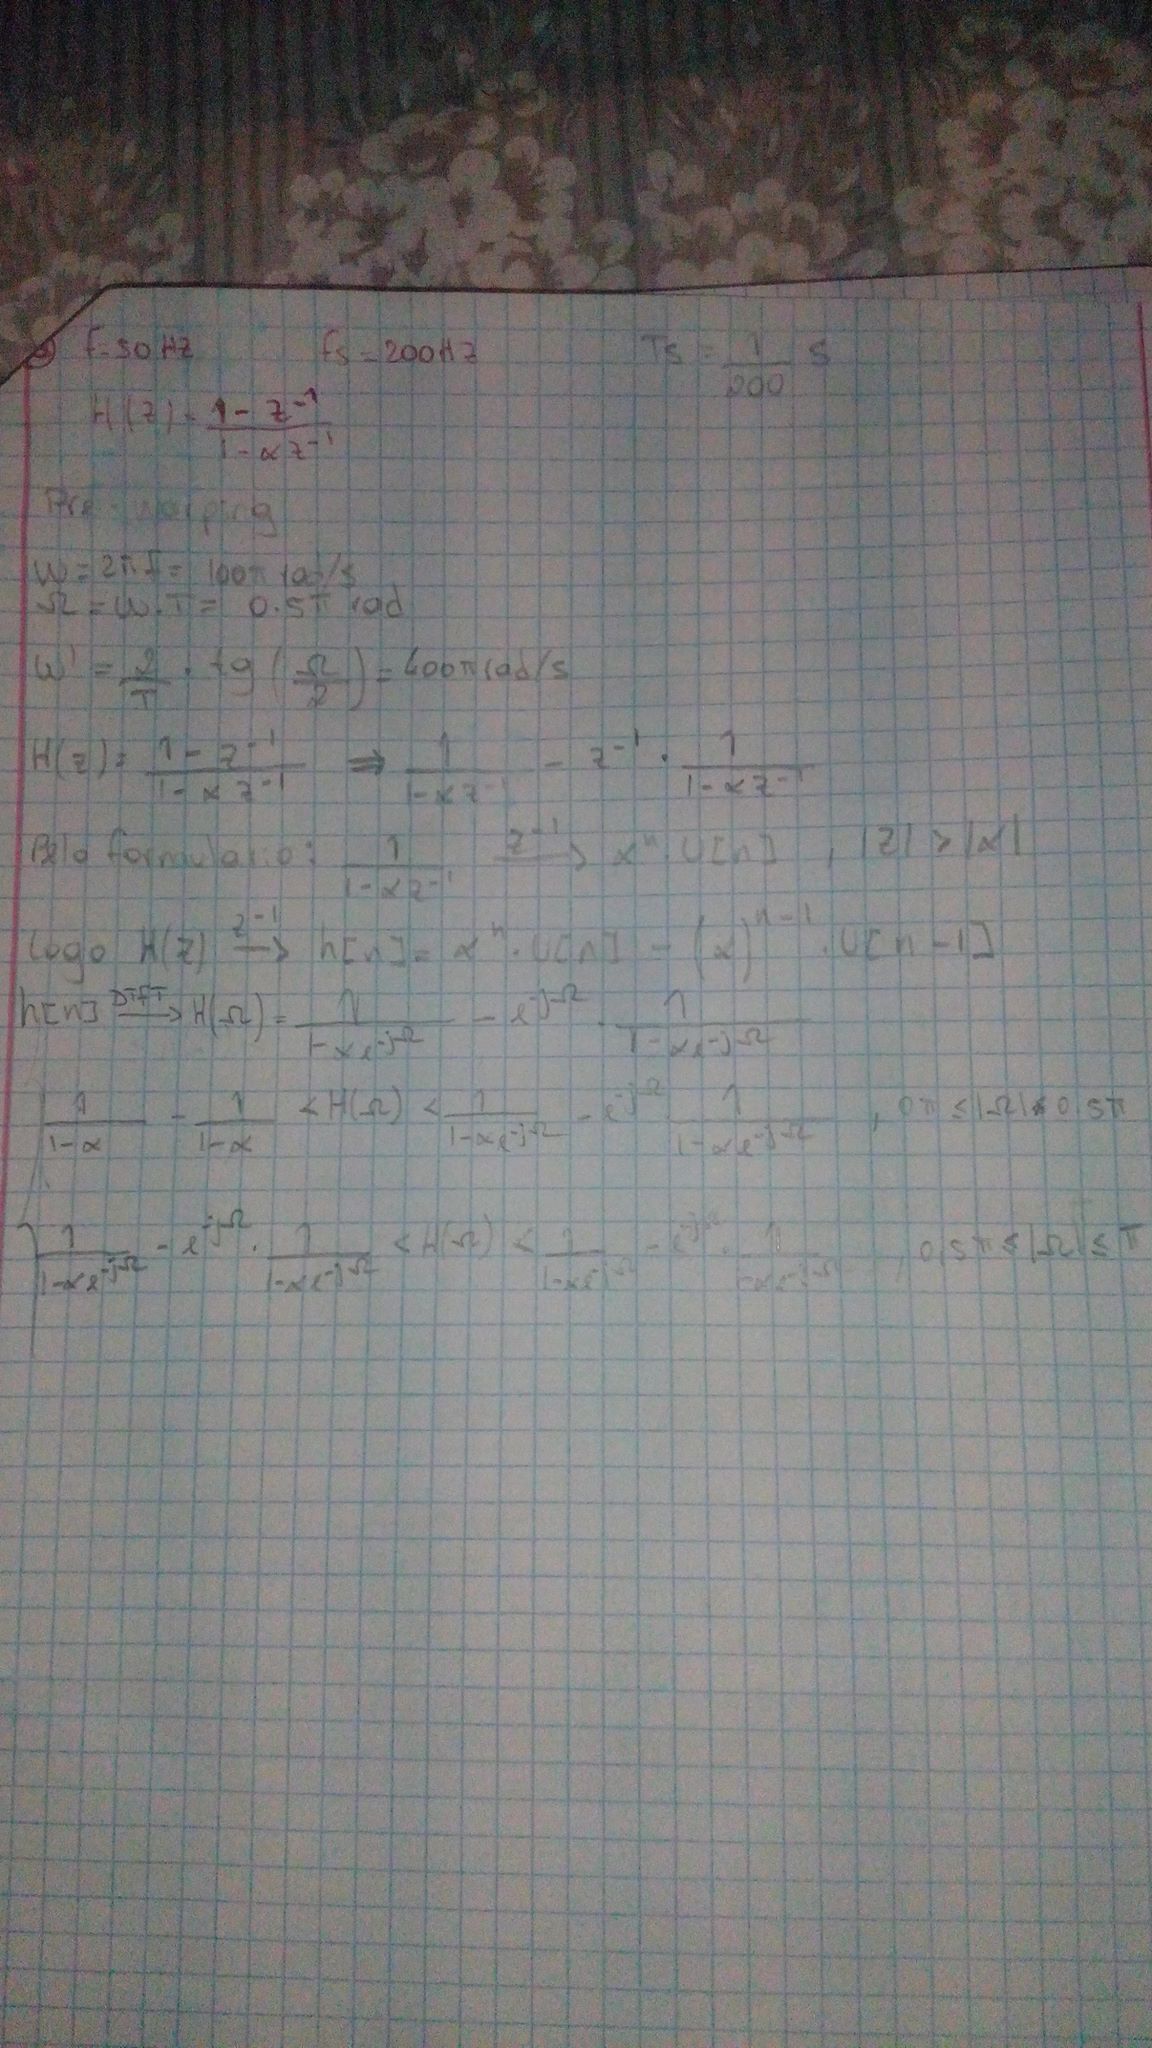 f=50Hz fs=200Hz Ts = 1/200 s
H(z)= (1-z^-1)/(1-αz^-1)
Pre-warping
W=2πf= 100π rad/s
Ω=W.T= 0.5π rad
W' = 2/T . tg(Ω/2) = 400π rad/s
H(z)= (1-z^-1)/(1-αz^-1) ⇒ 1/(1-αz^-1) - z^-1 . 1/(1-αz^-1)
Pelo formulario: 1/(1-αz^-1) z^-1→ α^n . U[n] , |z|>|α|
Logo H(z) z^-1→ h[n]= α^n . U[n] - (α)^n-1 . U[n-1]
h[n] DTFT→ H(Ω)= 1/(1-αe^-jΩ) - e^-jΩ 1/(1-αe^-jΩ)
1/(1-α) - 1/(1-α) < H(Ω) < 1/(1-αe^-jΩ) - e^-jΩ 1/(1-αe^-jΩ) , 0π ≤|Ω|< 0,5π
1/(1-αe^-jΩ) - e^-jΩ . 1/(1-αe^-jΩ) < H(Ω) < 1/(1-αe^-jΩ) - e^-jΩ . 1/(1-αe^-jΩ) , 0,5π ≤|Ω|≤ π